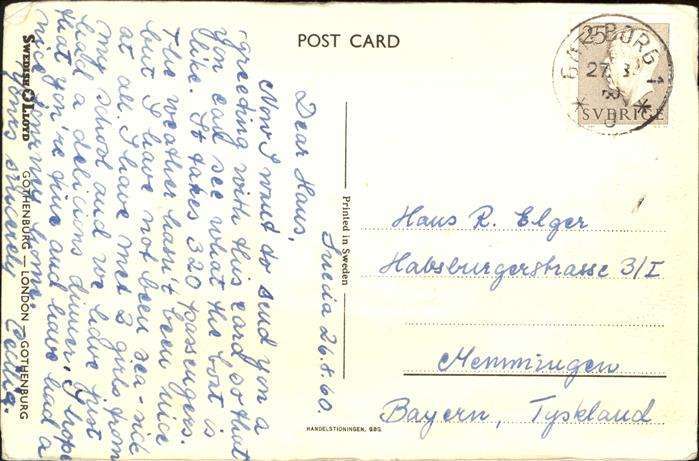 POST CARD
25
GÖTEBORG 1
27. 8.
SVERIGE
Suecia 26.8.60.
Dear Hans,
Now I want to send you a
greeting with this card so that
you can see what the boat is
like. It takes 320 passengers.
The weather hasn't been nice
but I have not been sea-sick
at all. I have met 2 girls from
my school and we have just
had a delicious dinner. I hope
that you're fine and have had a
nice journey home.
Yours sincerely
SWEDISH LLOYD GOTHENBURG — LONDON — GOTHENBURG
Printed in Sweden
Hans R. Elger
Habsburgerstrasse 3/I
Memmingen
Bayern, Tyskland
HANDELSTIONINGEN, GBG.